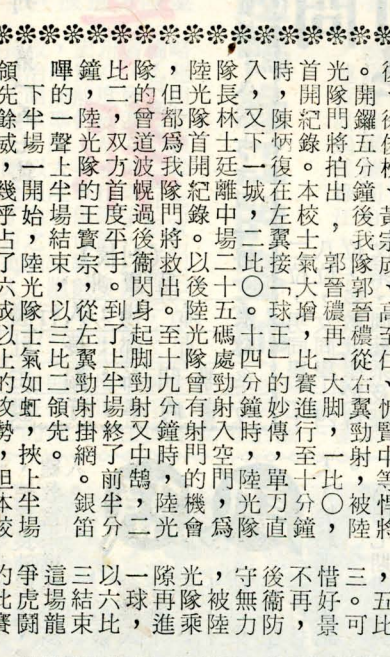 後、後侯彬、黃宗成、高至仁、慨賢中等悍將
。開鑼五分鐘後我隊郭晉檂從右翼勁射，被陸
光隊門將拍出，郭晉檂再一大脚，一比〇，
首開紀錄。本校士氣大增，比賽進行至十分鐘
時，陳炳復在左翼接「球王」的妙傳，單刀直
入，又下一城，二比〇。十四分鐘時，陸光隊
隊長林士廷離中場二十五碼處勁射入空門，爲
陸光隊首開紀錄。以後陸光隊曾有射門的機會
，但都爲我隊門將救出。至十九分鐘時，陸光
隊的曾道波幌過後衞閃身起脚勁射又中鵠，二
比二，双方首度平手。到了上半場終了前半分
鐘，陸光隊的王寶宗，從左翼勁射掛網。銀笛
嗶的一聲上半場結束，以三比二領先。
下半場一開始，陸光隊士氣如虹，挾上半場
領先餘威，幾乎占了六成以上的攻勢，但本校
，五比
三。可
惜好景
不再，
後衞防
守無力
，被陸
光隊乘
隙再進
一球，
以六比
三結束
這場龍
爭虎鬪
的比賽